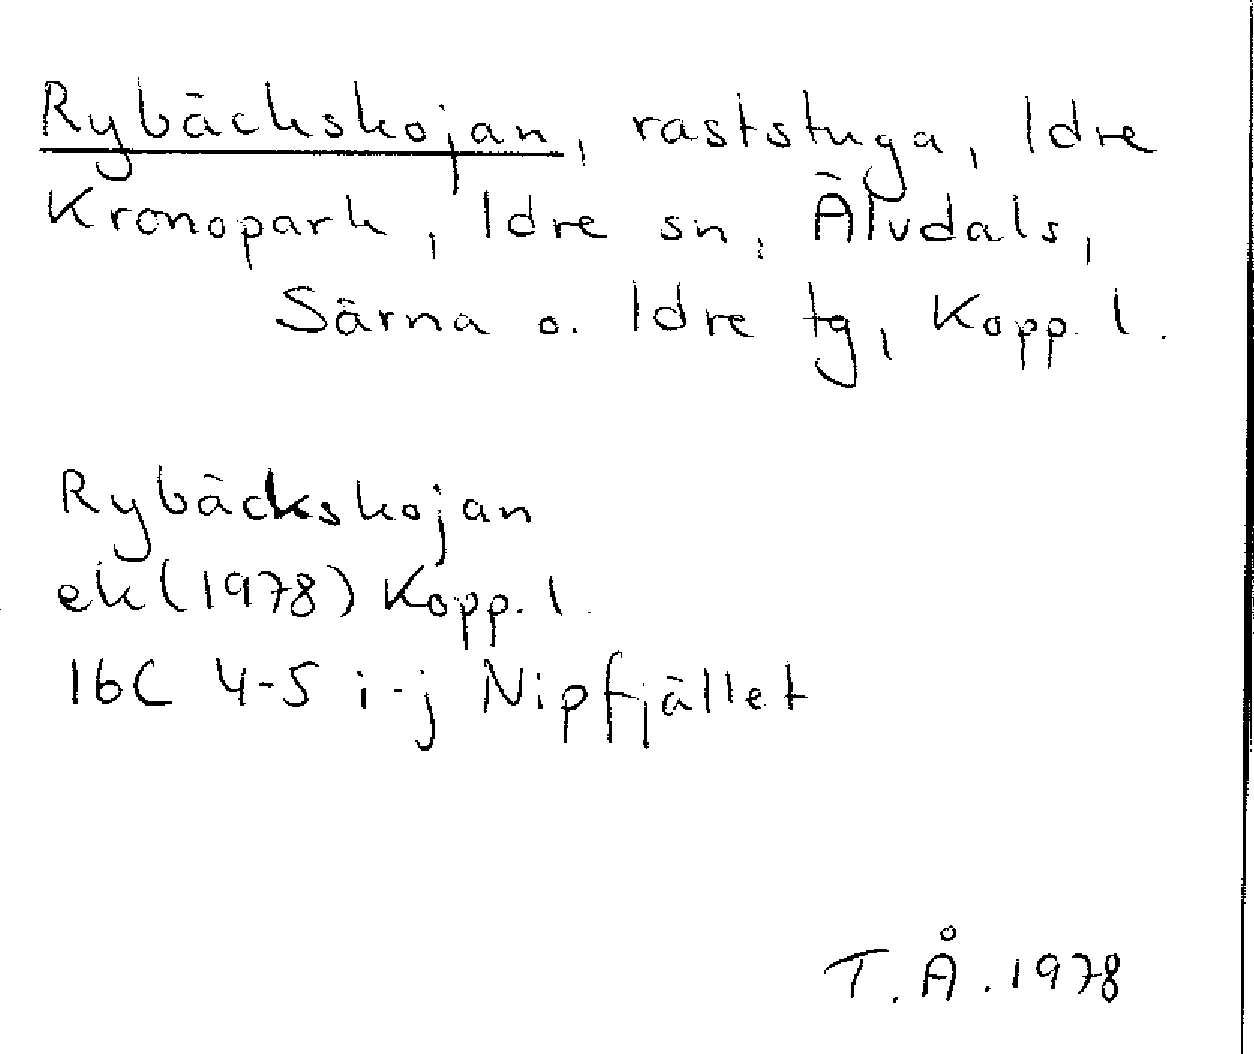 Rybäckskojan, raststuga, Idre
Kronopark, Idre sn, Älvdals,
Särna o. Idre tg, Kopp. l.
Rybäckskojan
ek (1978) Kopp. l.
16C 4-5 i-j Nipfjället
T.Å. 1978